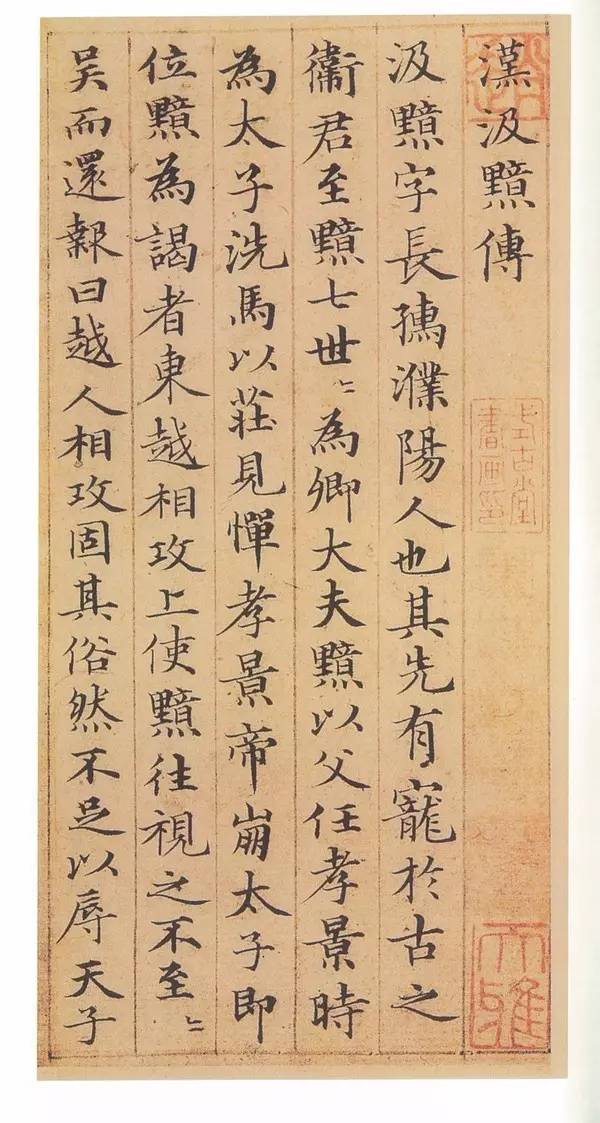 漢汲黯傳
汲黯字長孺濮陽人也其先有寵於古之
衛君至黯七世〻為卿大夫黯以父任孝景時
為太子洗馬以莊見憚孝景帝崩太子即
位黯為謁者東越相攻上使黯往視之不至〻
吳而還報曰越人相攻固其俗然不足以辱天子
大雅